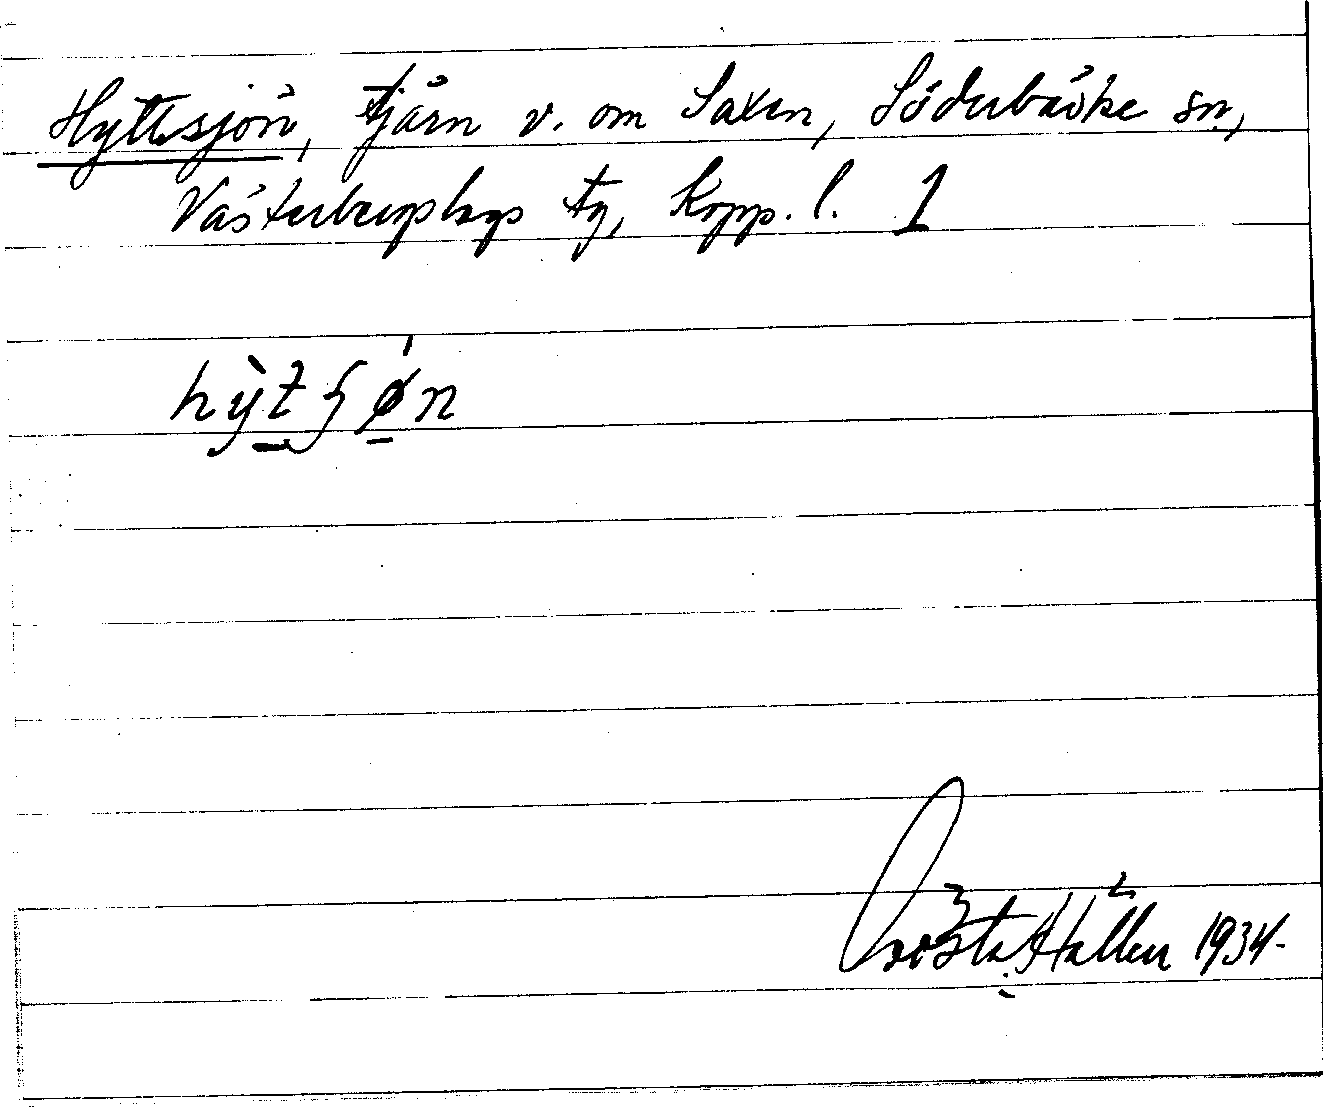 Hyttsjön, tjärn v. om Saxen, Söderbärke sn,
Västerbergslags tg, Kopp. l. 1
hỳtʂø̀n
Gösta Hallén 1934.